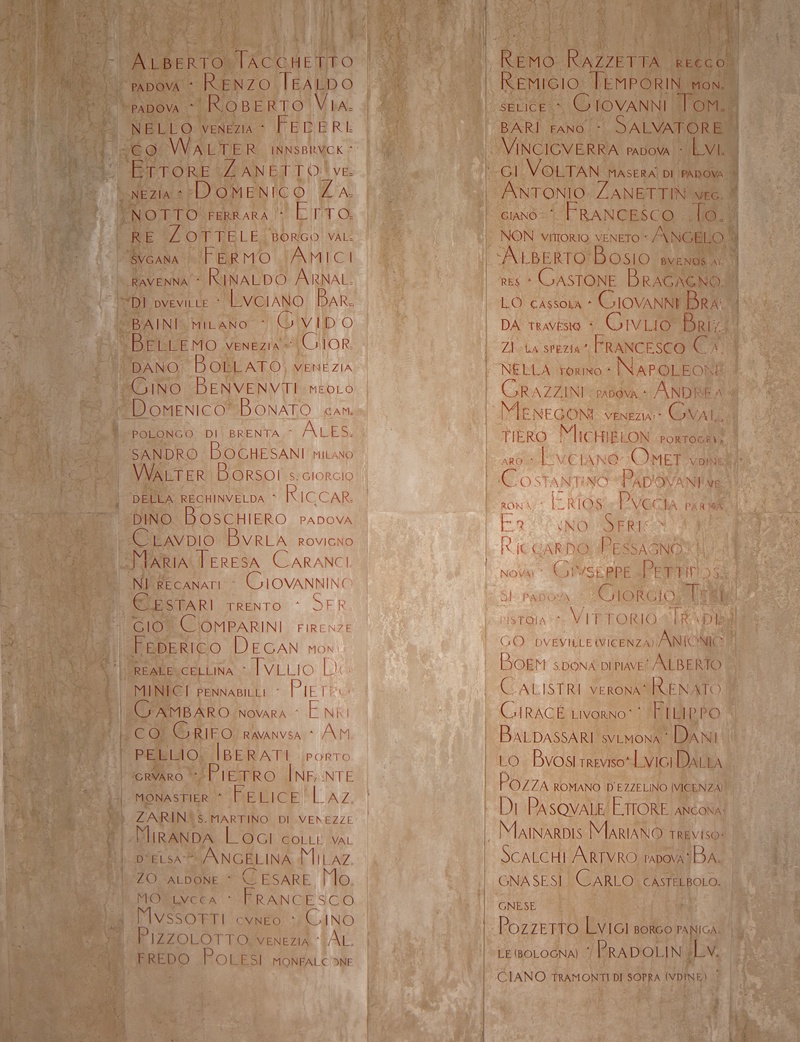 ALBERTO TACCHETTO
PADOVA · RENZO TEALDO
PADOVA · ROBERTO VIA.
NELLO VENEZIA · FEDERI.
CO WALTER INNSBRVCK ·
ETTORE ZANETTO VE.
NEZIA · DOMENICO ZA.
NOTTO FERRARA · ETTO.
RE ZOTTELE BORGO VAL.
SVGANA FERMO AMICI
RAVENNA · RINALDO ARNAL.
DI DVEVILLE · LVCIANO BAR.
BAINI MILANO · GVIDO
BELLEMO VENEZIA · GIOR.
DANO BOLLATO VENEZIA
GINO BENVENVTI MEOLO
DOMENICO BONATO CAM.
POLONGO DI BRENTA · ALES.
SANDRO BOGHESANI MILANO
WALTER BORSOI S. GIORGIO
DELLA RECHINVELDA · RICCAR.
DINO BOSCHIERO PADOVA
CLAVDIO BVRLA ROVIGNO
MARIA TERESA CARANCI.
NI RECANATI · GIOVANNINO
CESTARI TRENTO · SER.
GIO COMPARINI FIRENZE
FEDERICO DEGAN MON.
REALE CELLINA · TVLLIO DO
MINICI PENNABILLI · PIETRO
GAMBARO NOVARA · ENRI
CO GRIFO RAVANVSA · AM.
PELLIO IBERATI PORTO
GRVARO · PIETRO INFANTE
MONASTIER · FELICE LAZ.
ZARIN S. MARTINO DI VENEZZE
MIRANDA LOGI COLLE VAL
D'ELSA · ANGELINA MILAZ.
ZO ALDONE · CESARE MO.
MO LVCCA · FRANCESCO
MVSSOTTI CVNEO · GINO
PIZZOLOTTO VENEZIA · AL.
FREDO POLESI MONFALCONE
REMO RAZZETTA RECCO
REMIGIO TEMPORIN MON.
SELICE · GIOVANNI TOM.
BARI FANO · SALVATORE
VINCIGVERRA PADOVA · LVI.
GI VOLTAN MASERA' DI PADOVA
ANTONIO ZANETTIN VEG.
GIANO · FRANCESCO TO.
NON VITTORIO VENETO · ANGELO
ALBERTO BOSIO BVENOS AI.
RES · GASTONE BRAGAGNO.
LO CASSOLA · GIOVANNI BRA.
DA TRAVESIO · GIVLIO BRIZ.
ZI LA SPEZIA · FRANCESCO CA.
NELLA TORINO · NAPOLEONE
GRAZZINI PADOVA · ANDREA
MENEGONI VENEZIA · GVAL.
TIERO MICHIELON PORTOGRV.
ARO · LVCIANO OMET VDINE
COSTANTINO PADOVANI VE.
RONA · ERIOS PVCCIA PARMA
SERI
RICCARDO PESSAGNO
NOVA · GIVSEPPE PETTIROS.
SI PADOVA · GIORGIO TESI
PISTOIA · VITTORIO TRADI
GO DVEVILLE (VICENZA) ANTONIO
BOEM S. DONA DI PIAVE · ALBERTO
CALISTRI VERONA · RENATO
GIRACE LIVORNO · FILIPPO
BALDASSARI SVLMONA · DANI
LO BVOSI TREVISO · LVIGI DALLA
POZZA ROMANO D'EZZELINO (VICENZA)
DI PASQVALE ETTORE ANCONA·
MAINARDIS MARIANO TREVISO·
SCALCHI ARTVRO PADOVA · BA.
GNASESI CARLO CASTELBOLO.
GNESE
POZZETTO LVIGI BORGO PANIGA.
LE (BOLOGNA) · PRADOLIN LV.
CIANO TRAMONTI DI SOPRA (VDINE) ·